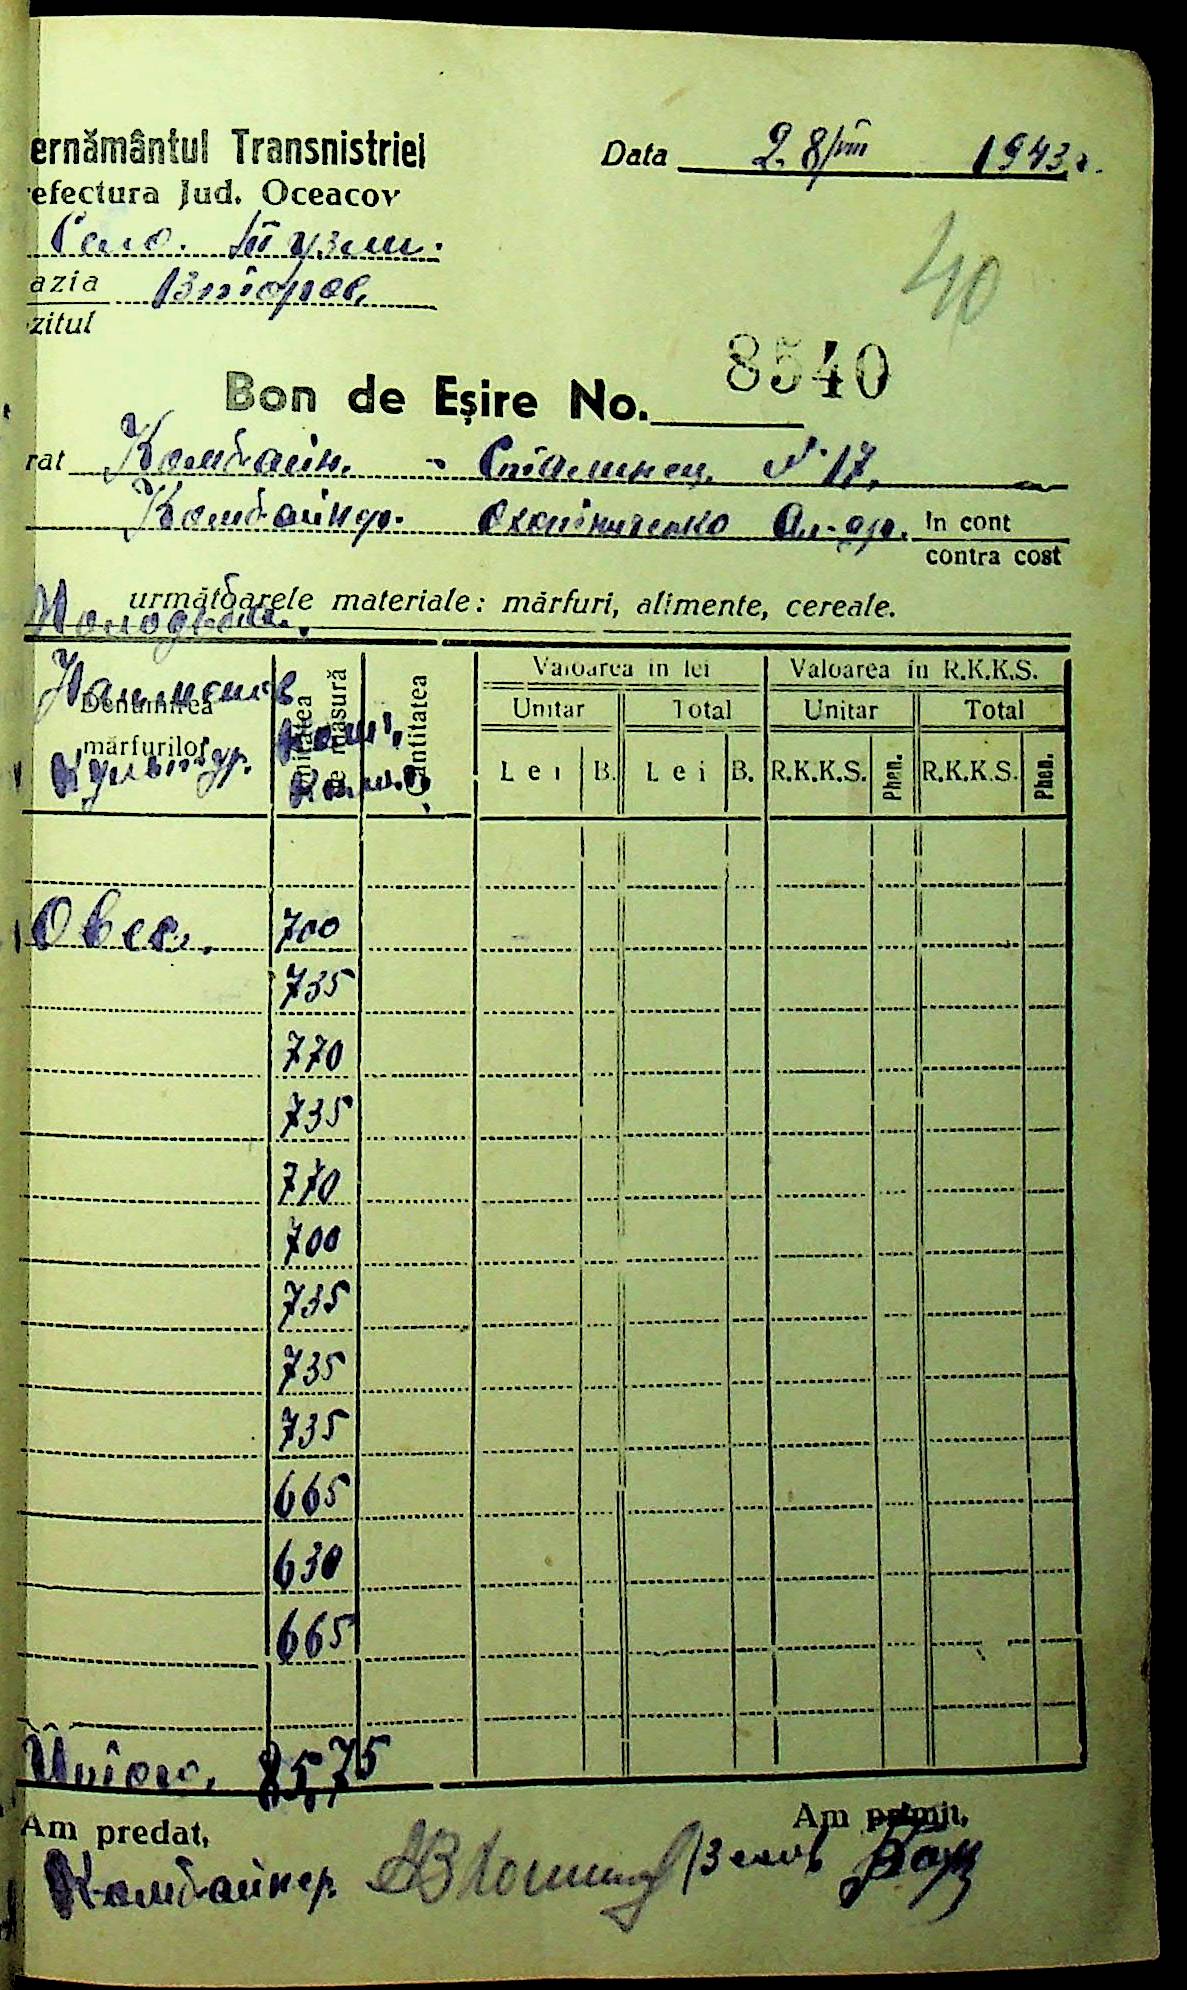 ernământul Transnistriei
Data 28/VIII 1943 г.
efectura Jud. Oceacov
Село. Тузли.
azia Второв.
zitul
40
Bon de Eşire No. 8540
rat Комбайн. - Сталинец. №17.
Комбайнер. Ал-др. In cont
contra cost
următoarele materiale: mărfuri, alimente, cereale.
Молодьба.
Valoarea in lei Valoarea în R.K.K.S.
Denumirea mărfurilor Unitatea de măsură Cantitatea Unitar Total Unitar Total
Культур.
Lei B. Lei B. R.K.K.S. Phen. R.K.K.S. Phen.
Овес. 700
735
770
735
770
700
735
735
735
665
630
665
Итого. 8575
Am predat, Am primit,
Комбайнер.